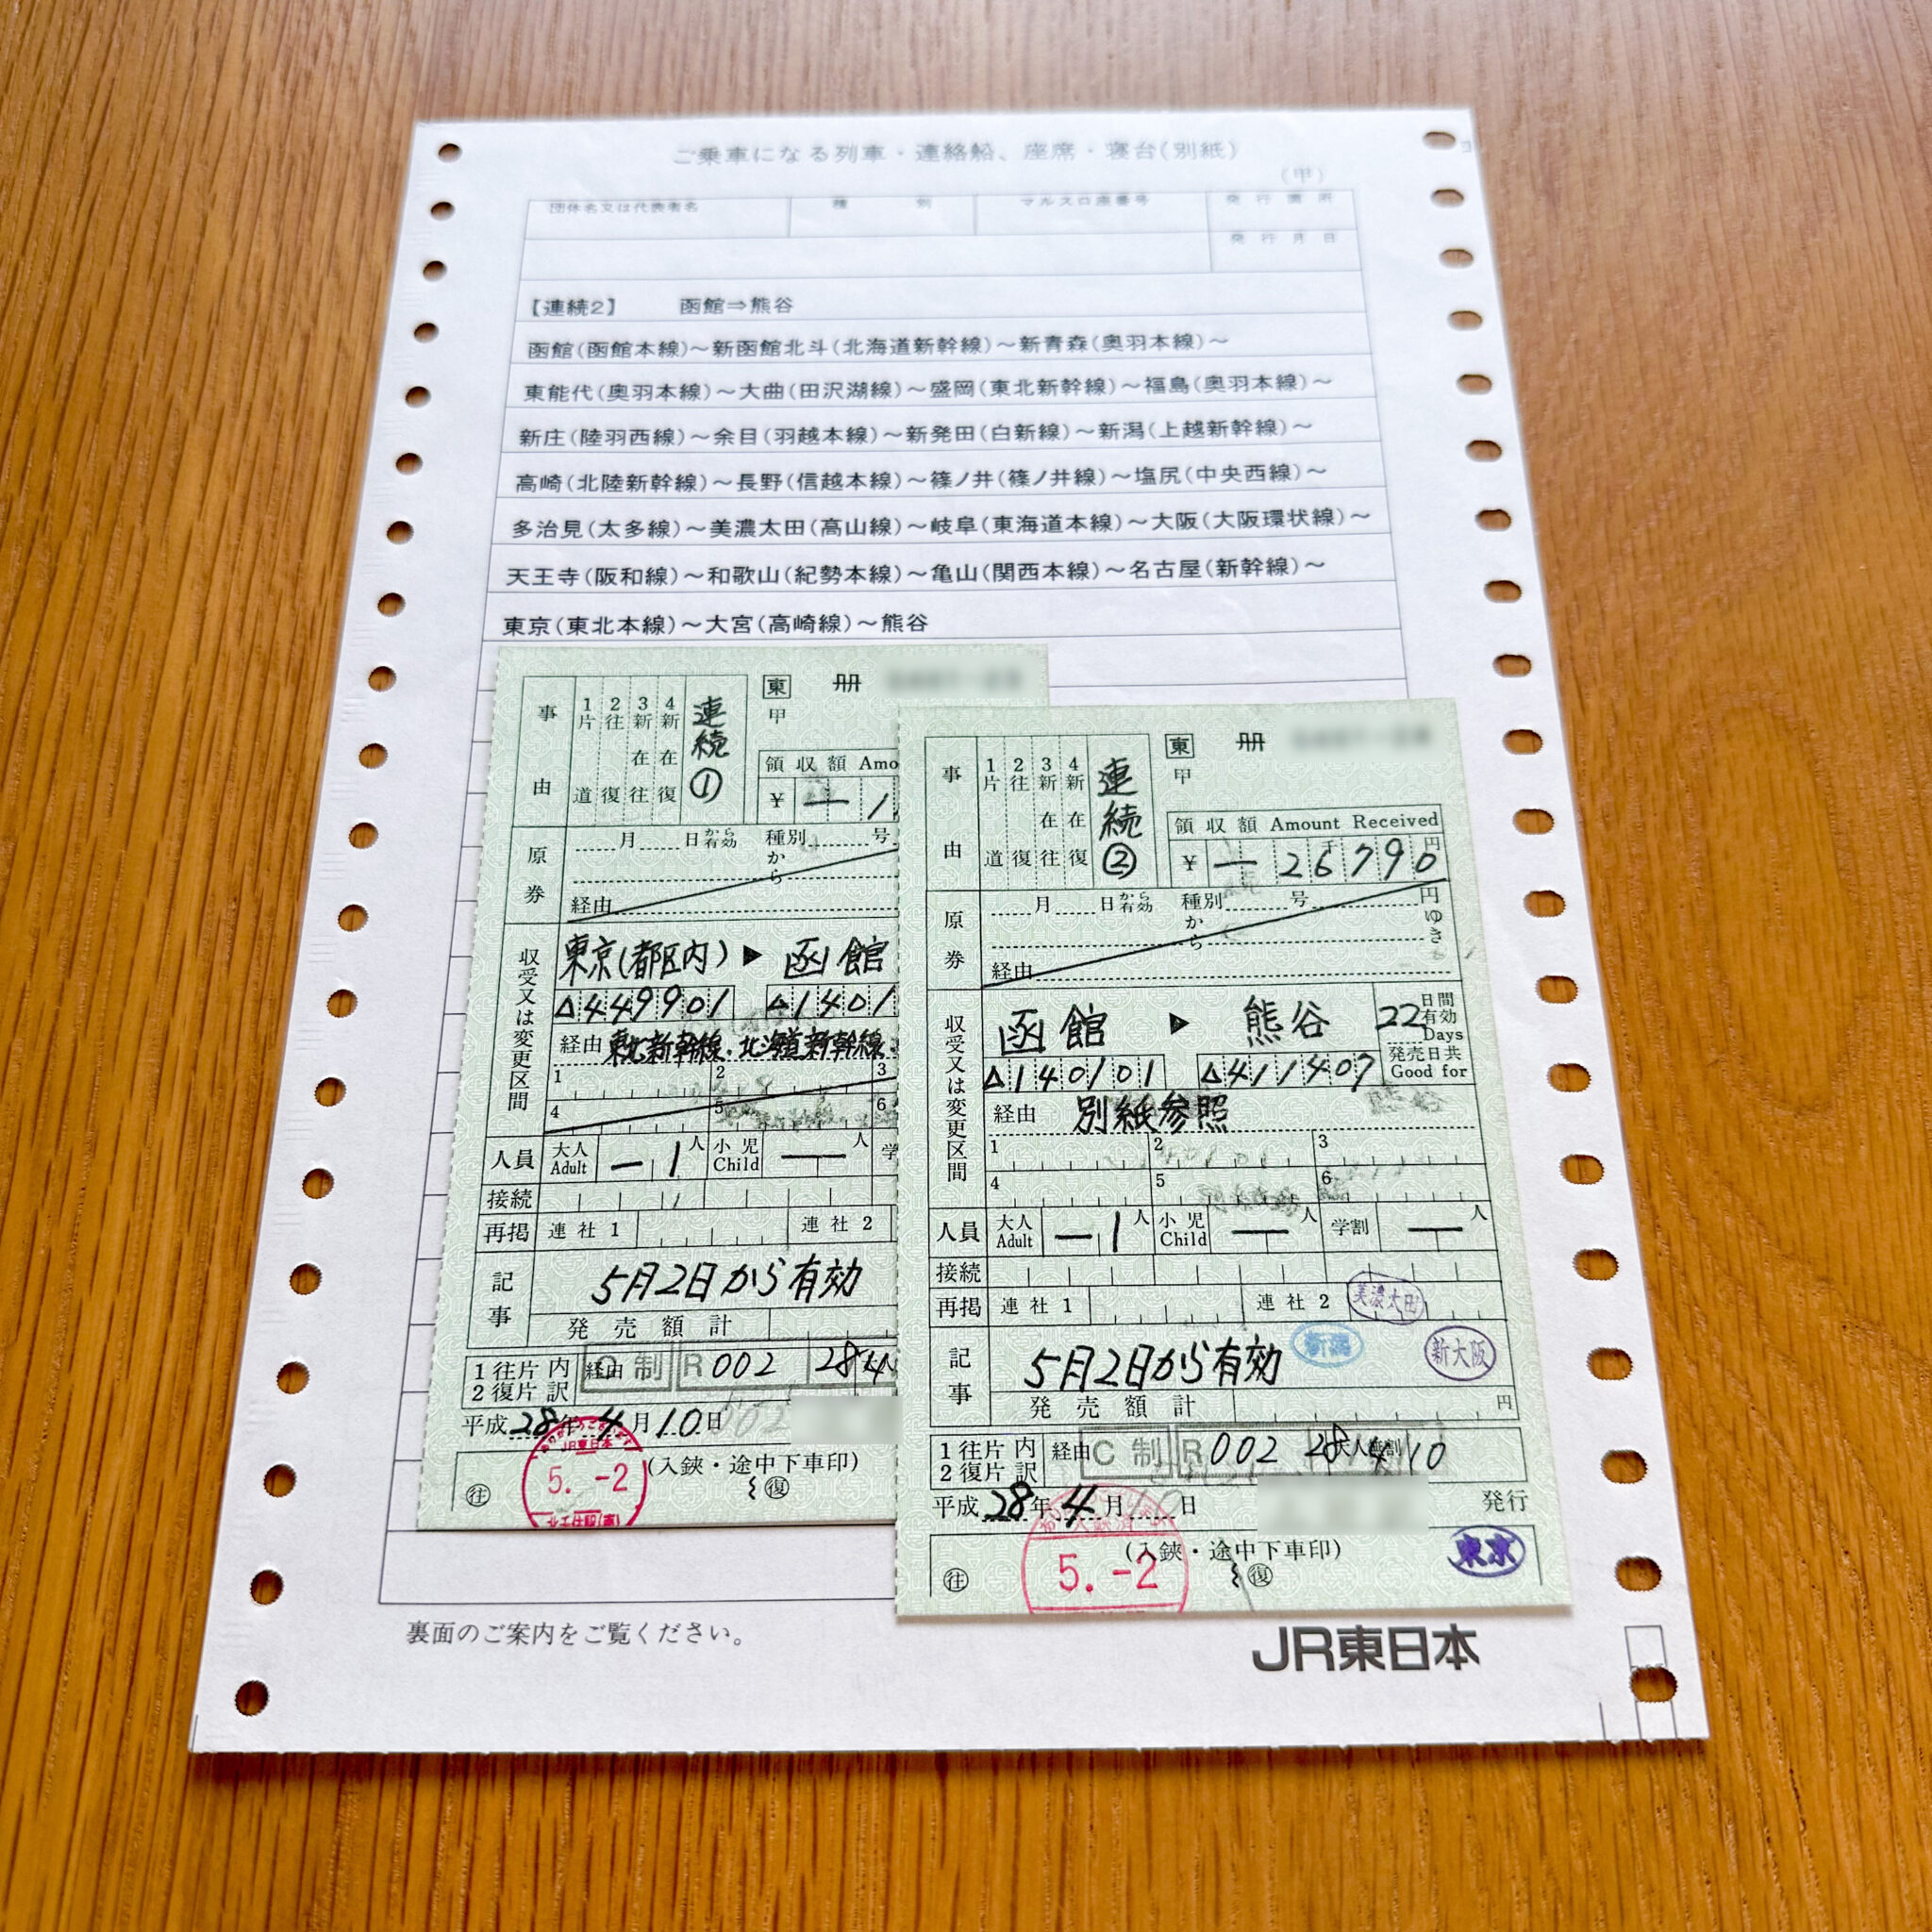 ご乗車になる列車・連絡船、座席・寝台(別紙)
(甲)
団体名又は代表者名 種別 マルス口座番号 発行箇所
発行月日
【連続2】 函館⇒熊谷
函館(函館本線)～新函館北斗(北海道新幹線)～新青森(奥羽本線)～
東能代(奥羽本線)～大曲(田沢湖線)～盛岡(東北新幹線)～福島(奥羽本線)～
新庄(陸羽西線)～余目(羽越本線)～新発田(白新線)～新潟(上越新幹線)～
高崎(北陸新幹線)～長野(信越本線)～篠ノ井(篠ノ井線)～塩尻(中央西線)～
多治見(太多線)～美濃太田(高山線)～岐阜(東海道本線)～大阪(大阪環状線)～
天王寺(阪和線)～和歌山(紀勢本線)～亀山(関西本線)～名古屋(新幹線)～
東京(東北本線)～大宮(高崎線)～熊谷
東 冊
甲
事由
1片道
2往復
3新在往
4新在復
連続①
領収額 Amo
¥ ー 1
原券
月 日から有効 種別 号
から
経由
収受又は変更区間
東京(都区内) ▶ 函館
△449901 △1401
経由 東北新幹線、北海道新幹線
1 2 3
4 5 6
人員 大人 Adult ー1人 小児 Child ー人 学
接続
再掲 連社1 連社2
記事
5月2日から有効
発売額計
1往片内
2復片訳
経由 C制 R002 28.4
平成28年4月10日
JR東日本
5.-2
(入鋏・途中下車印)
往 復
東 冊
甲
事由
1片道
2往復
3新在往
4新在復
連続②
領収額 Amount Received
¥ ー 26790円
原券
月 日から有効 種別 号 円
から ゆき
経由
収受又は変更区間
函館 ▶ 熊谷
22日間有効 Days
発売日共 Good for
△140101 △411407
経由 別紙参照
1 2 3
4 5 6
人員 大人 Adult ー1人 小児 Child ー人 学割 ー人
接続
再掲 連社1 連社2
美濃太田
記事
5月2日から有効
新潟
新大阪
発売額計 円
1往片内
2復片訳
経由 C制 R002 28.4.10
平成28年4月10日 発行
5.-2
(入鋏・途中下車印)
往 復
東京
裏面のご案内をご覧ください。
JR東日本